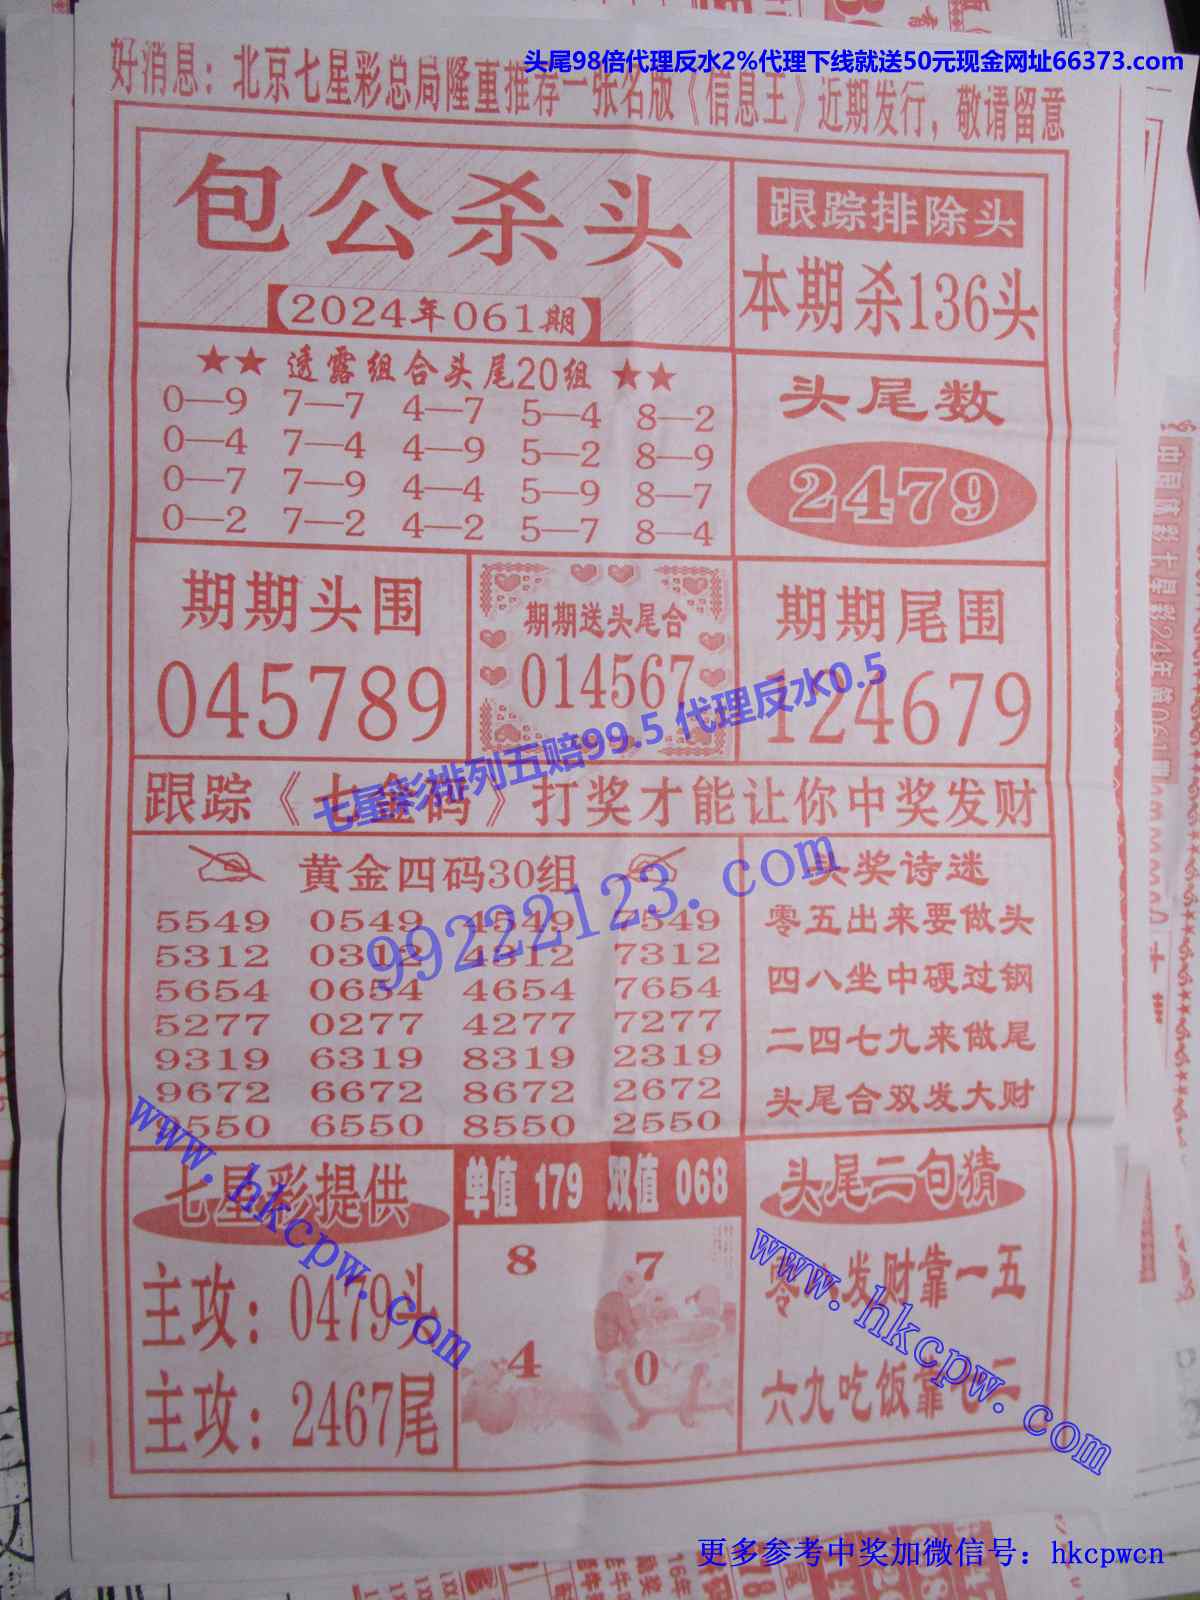 头尾98倍代理反水2%代理下线就送50元现金网址66373.com
好消息：北京七星彩总局隆重推荐一张名版《信息王》近期发行，敬请留意
包公杀头
【2024年061期】
跟踪排除头
本期杀136头
★★ 透露组合头尾20组 ★★
0—9 7—7 4—7 5—4 8—2
0—4 7—4 4—9 5—2 8—9
0—7 7—9 4—4 5—9 8—7
0—2 7—2 4—2 5—7 8—4
头尾数
2479
期期头围
045789
期期送头尾合
014567
期期尾围
124679
七星彩排列五赔99.5 代理反水0.5
跟踪《七金码》打奖才能让你中奖发财
黄金四码30组
5549 0549 4549 7549
5312 0312 4312 7312
5654 0654 4654 7654
5277 0277 4277 7277
9319 6319 8319 2319
9672 6672 8672 2672
9550 6550 8550 2550
99222123.com
头奖诗迷
零五出来要做头
四八坐中硬过钢
二四七九来做尾
头尾合双发大财
七星彩提供
主攻：0479头
主攻：2467尾
www.hkcpw.com
单值 179 双值 068
8 7
4 0
头尾二句猜
零八发财靠一五
六九吃饭靠七二
www.hkcpw.com
更多参考中奖加微信号：hkcpwcn